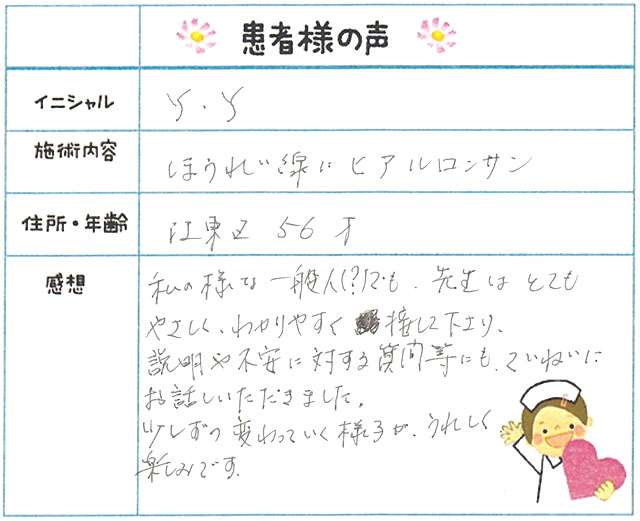 患者様の声
イニシャル Y.Y
施術内容 ほうれい線にヒアルロンサン
住所・年齢 江東区 56才
感想 私の様な一般人(?)でも、先生はとても
やさしく、わかりやすく 接して下さり、
説明や不安に対する質問等にも、ていねいに
お話しいただきました。
少しずつ変わっていく様子が、うれしく
楽しみです。